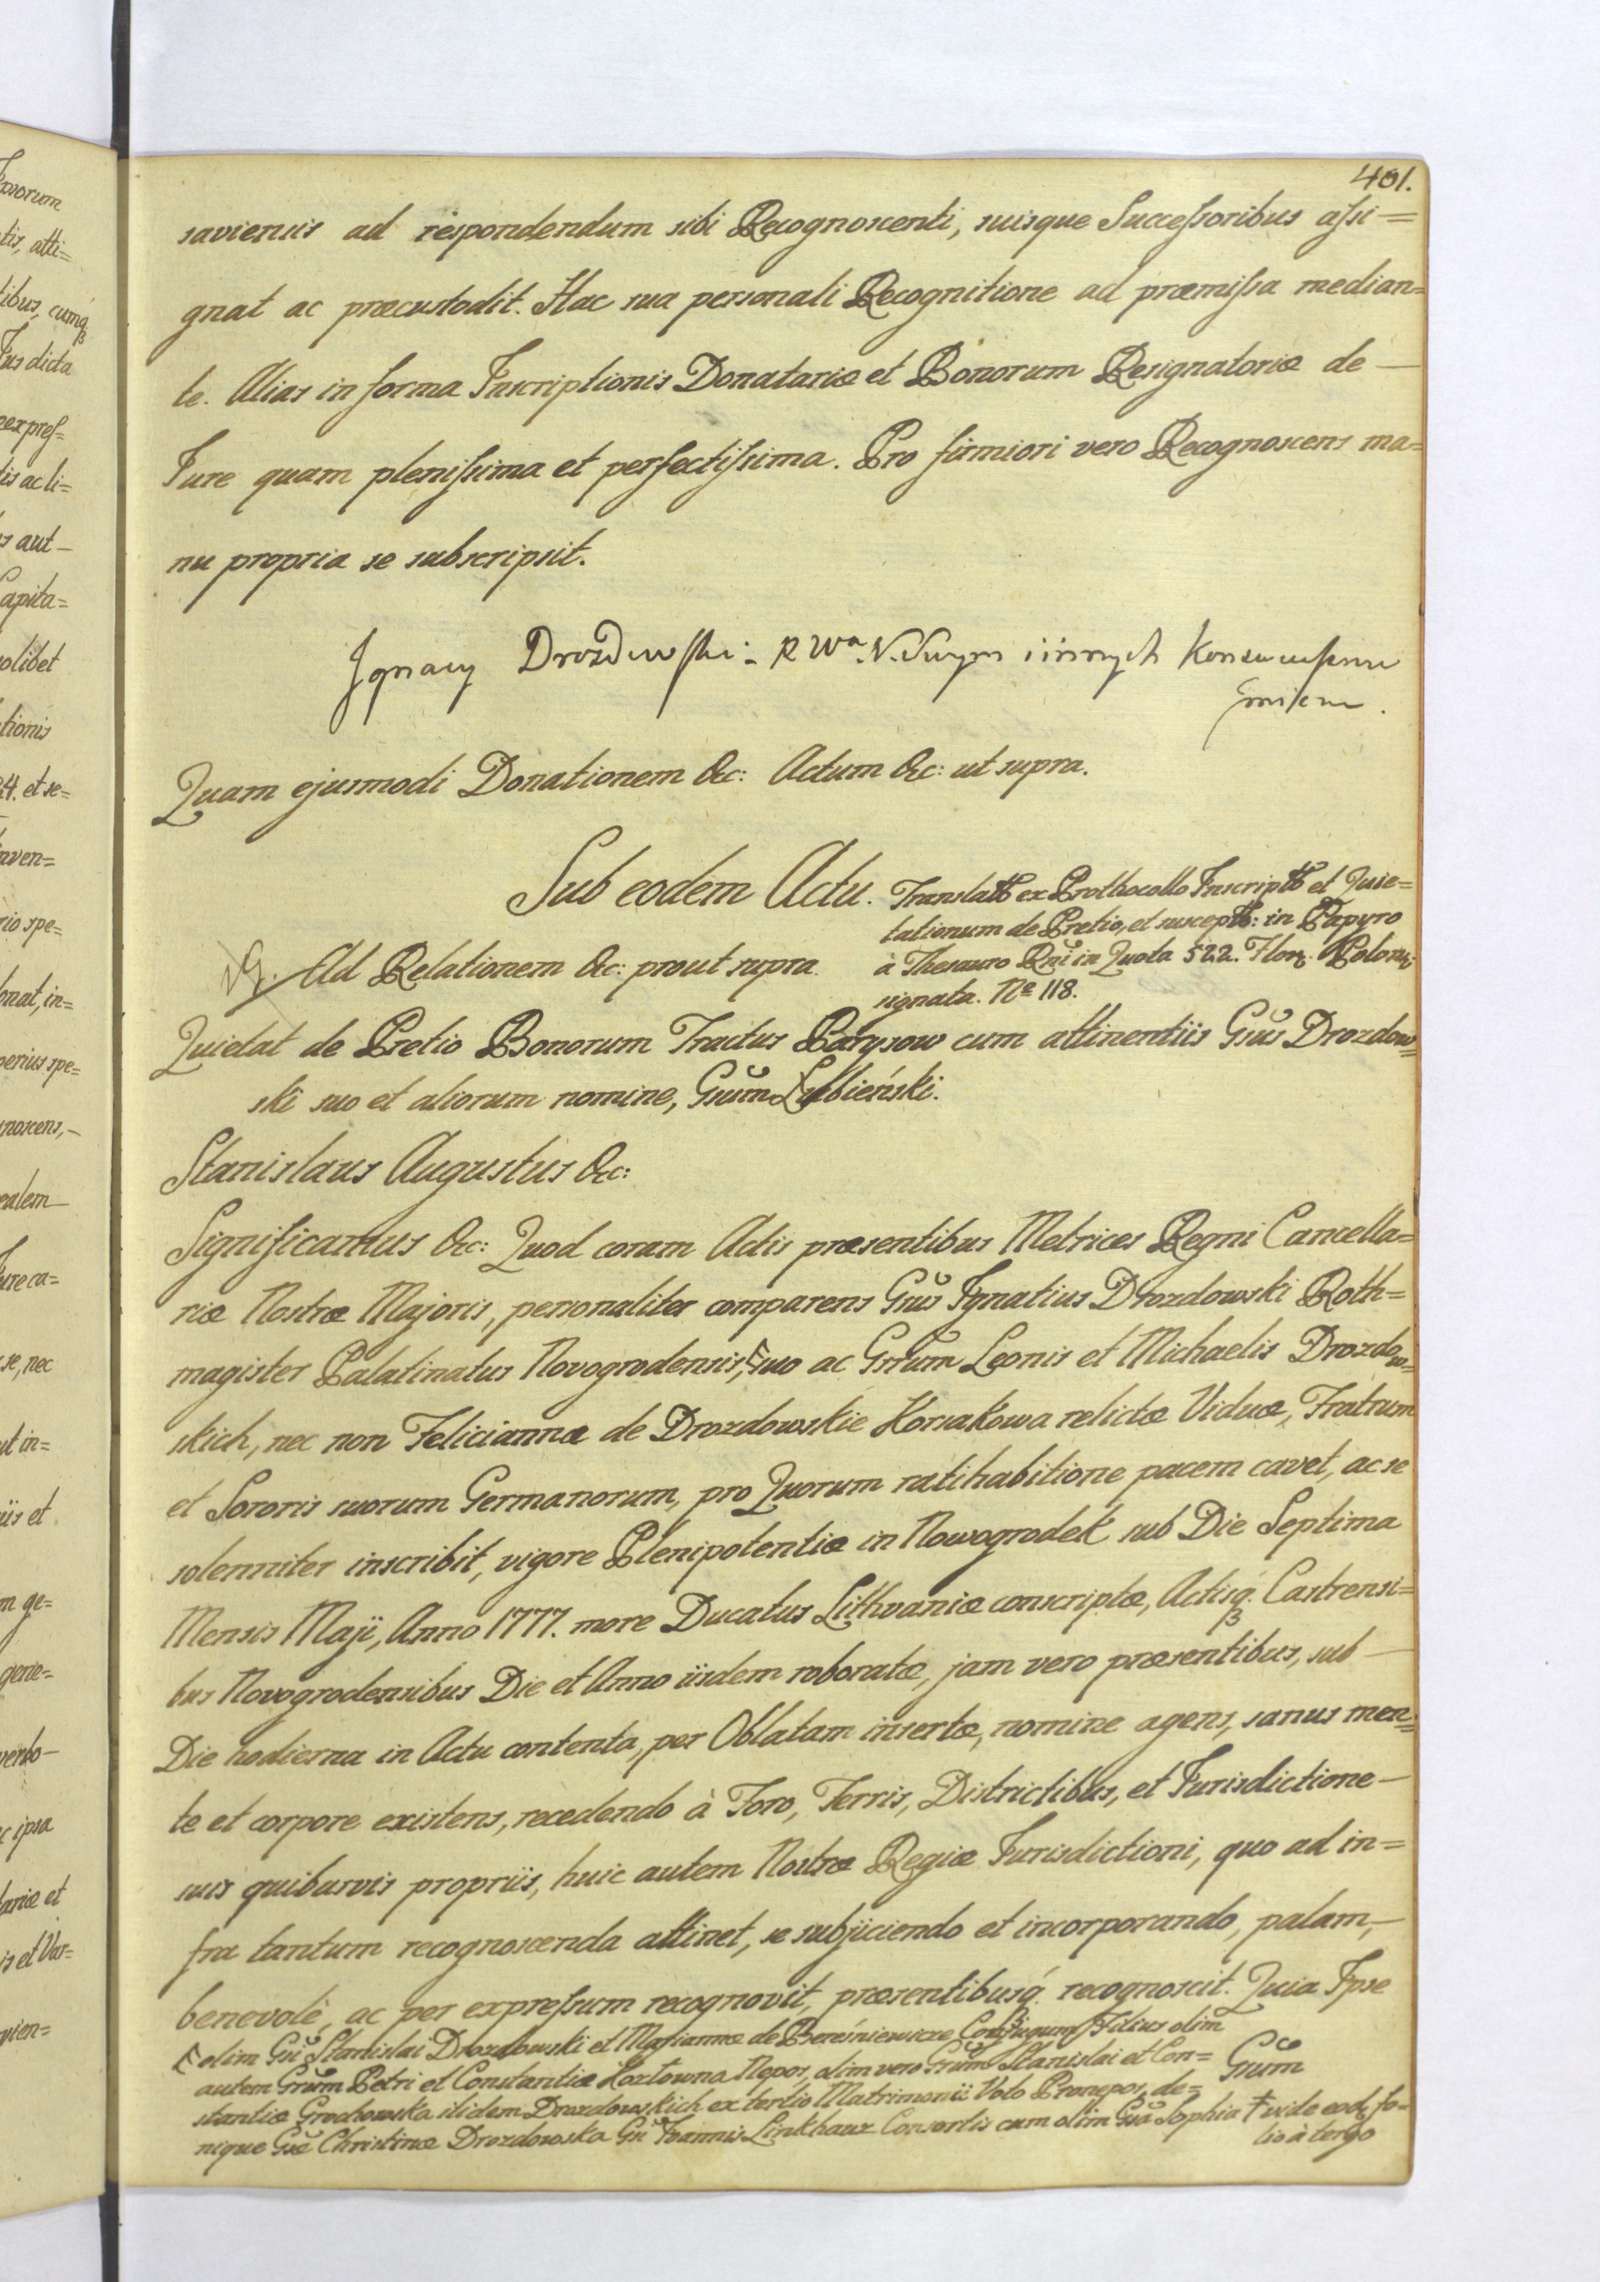 401.
saviensis ad respondendum sibi Recognoscenti, suisque Successoribus assi=
gnat ac præcustodit. Hac sua personali Recognitione ad præmissa median=
te. Alias in forma Inscriptionis Donatariæ et Bonorum Resignatoriæ de —
Jure quam plenissima et perfectissima. Pro firmiori vero Recognoscens ma=
nu propria se subscripsit.
Ignacy Drozdowski R Wa. N. Swym i innych Konsukcessorow
Imieniem.
Quam ejusmodi Donationem &c: Actum &c: ut supra.
Sub eodem Actu.
Translatt ex Prothocollo Inscriptt et Quie=
tationum de Pretio, et susceptt: in Papyro
à Thesauro Rni in Quota 522. Flor. Polon:
signata. No 118.
Ad Relationem &c: prout supra.
Quietat de Pretio Bonorum Tractus Parysow cum attinentiis Gsus Drozdow=
ski suo et aliorum nomine, Gsum Łubieński.
Stanislaus Augustus &c:
Significamus &c: Quod coram Actis præsentibus Metrices Regni Cancella=
riæ Nostræ Majoris, personaliter comparens Gsus Ignatius Drozdowski Roth=
magister Palatinatus Novogrodensis, suo ac Gsrum Leonis et Michaelis Drozdow=
skich, nec non Feliciannæ de Drozdowskie Korsakowa relictæ Viduæ, Fratrum
et Sororis suorum Germanorum, pro Quorum ratihabitione pacem cavet, ac se
solenniter inscribit, vigore Plenipotentiæ in Nowogrodek sub Die Septima
Mensis Maji, Anno 1777. more Ducatus Lithvaniæ conscriptæ, Actisq. Castrensi=
bus Novogrodensibus Die et Anno iisdem roboratæ, jam vero præsentibus, sub —
Die hodierna in Actu contenta, per Oblatam insertæ, nomine agens, sanus men=
te et corpore existens, recedendo à Foro, Terris, Districtibus, et Jurisdictione —
suis quibusvis propriis, huic autem Nostræ Regiæ Jurisdictioni, quo ad in=
fra tantum recognoscenda attinet, se subjiciendo et incorporando, palam, —
benevolè, ac per expressum recognovit, præsentibusq. recognoscit. Quia Ipse
olim Gsi Stanislai Drozdowski et Mariannæ de Bereśniewicze Conjugum Filius olim
autem Gsrum Petri et Constantiæ Kozłowna Nepos, olim vero Gsrum Stanislai et Con=
stantiæ Grochowska itidem Drozdowskich ex tertio Matrimonii Voto Pronepos, de=
nique Gsæ Christinæ Drozdowska Gsi Joannis Linkhauz Consortis cum olim Gsa Sophia
Gsum
† vide eod. fo=
lio à tergo